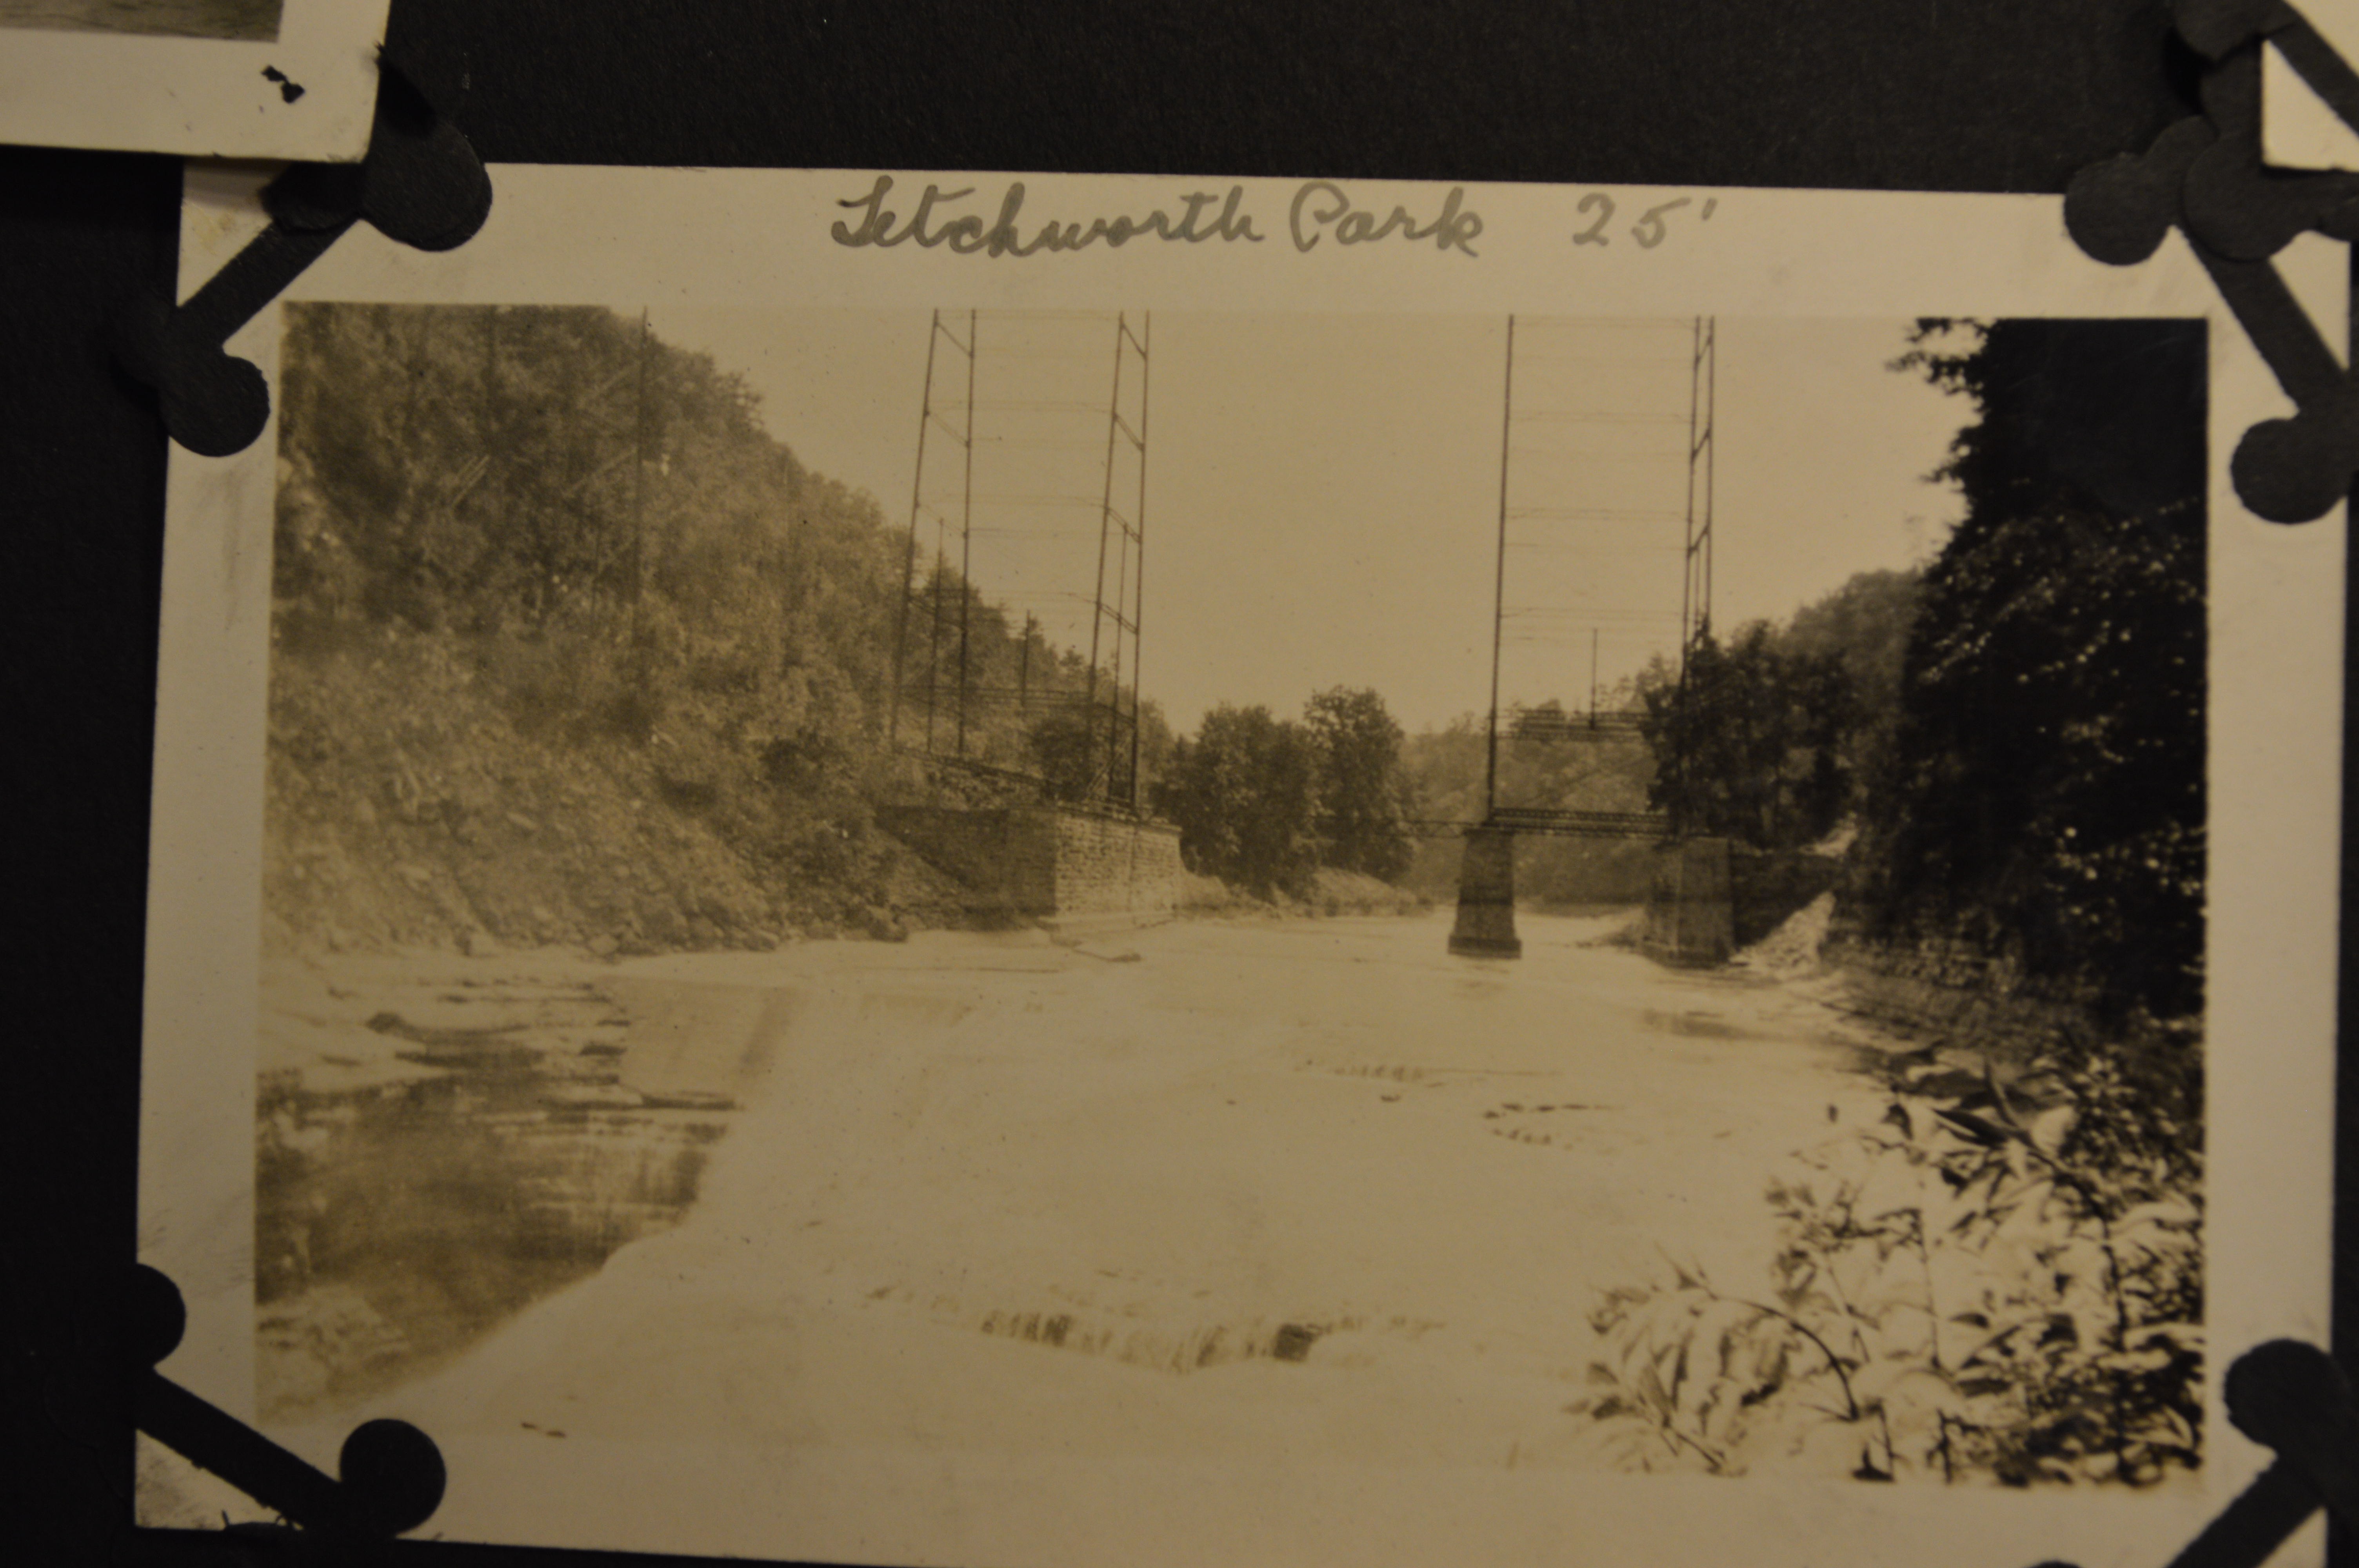 Letchworth Park 25'